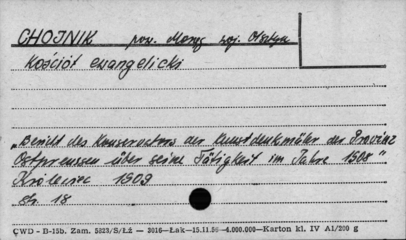 CHOJNIK pow. Morąg woj. Olsztyn
Kościół ewangelicki
„Bericht des Konservators der Kunstdenkmäler der Provinz
Ostpreussen über seine Tätigkeit im Jahre 1908"
Królewiec 1909
str. 18
ĆWD - B-15b. Zam. 5823/S/ŁŻ — 2016—Łak—15.11.56—4.000.000—Karton kl. IV A1/200 g